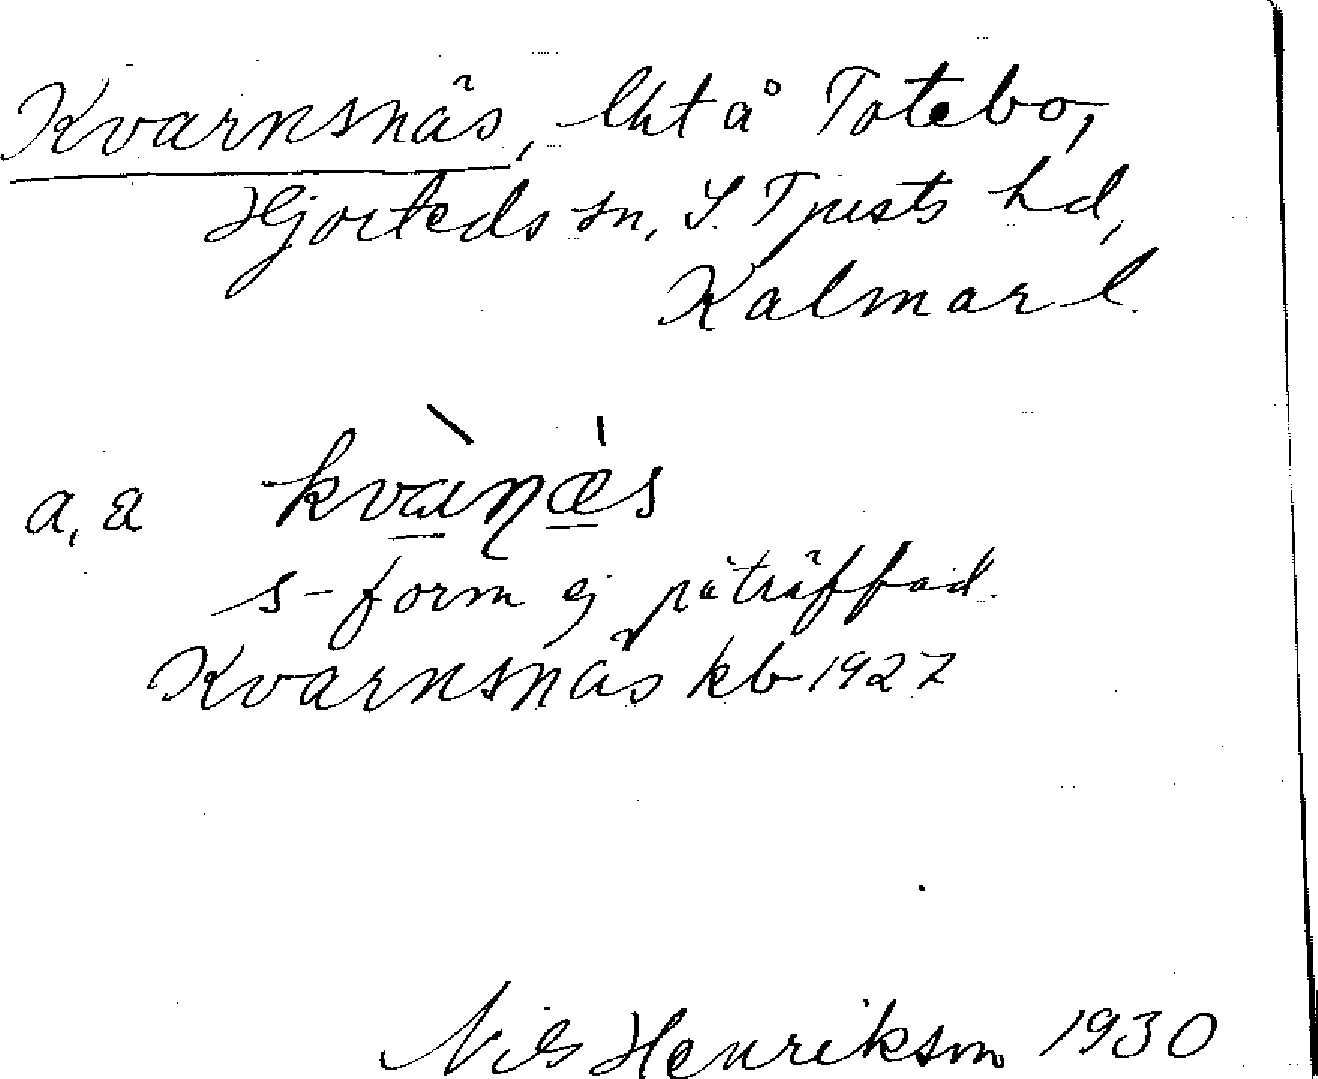 Kvarnsnäs, lht å Totebo,
Hjorteds sn, S. Tjusts hd,
Kalmar l.
a, a kvànæs
s-form ej påträffad.
Kvarnsnäs kb 1927
Nils Henrikson 1930